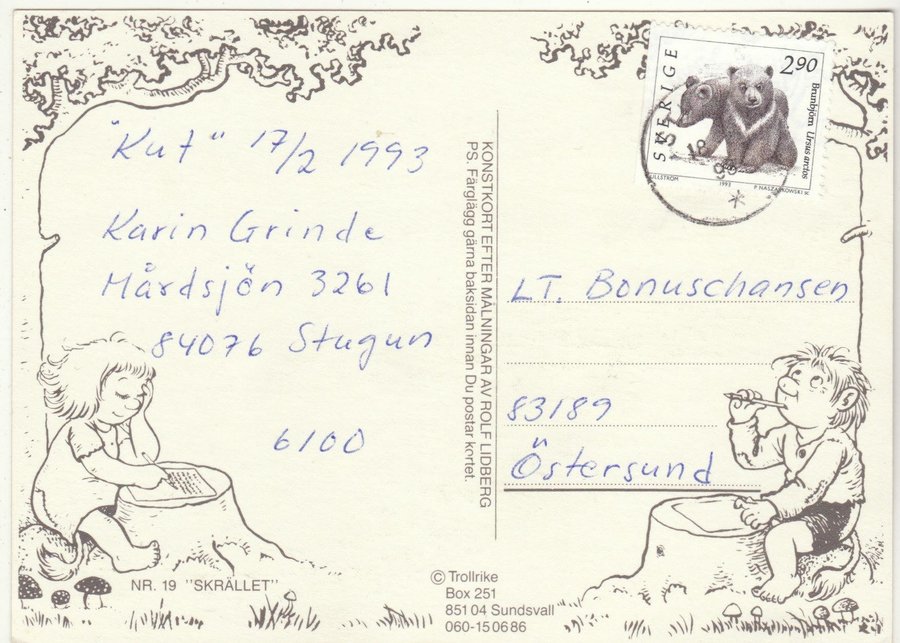 "Kut" 17/2 1993
Karin Grinde
Mårdsjön 3261
84076 Stugun
6100
NR. 19 "SKRÄLLET"
KONSTKORT EFTER MÅLNINGAR AV ROLF LIDBERG
PS. Färglägg gärna baksidan innan Du postar kortet.
© Trollrike
Box 251
851 04 Sundsvall
060-15 06 86
SVERIGE
290
Brunbjörn Ursus arctos
1993
18
LT. Bonuschansen
83189
Östersund